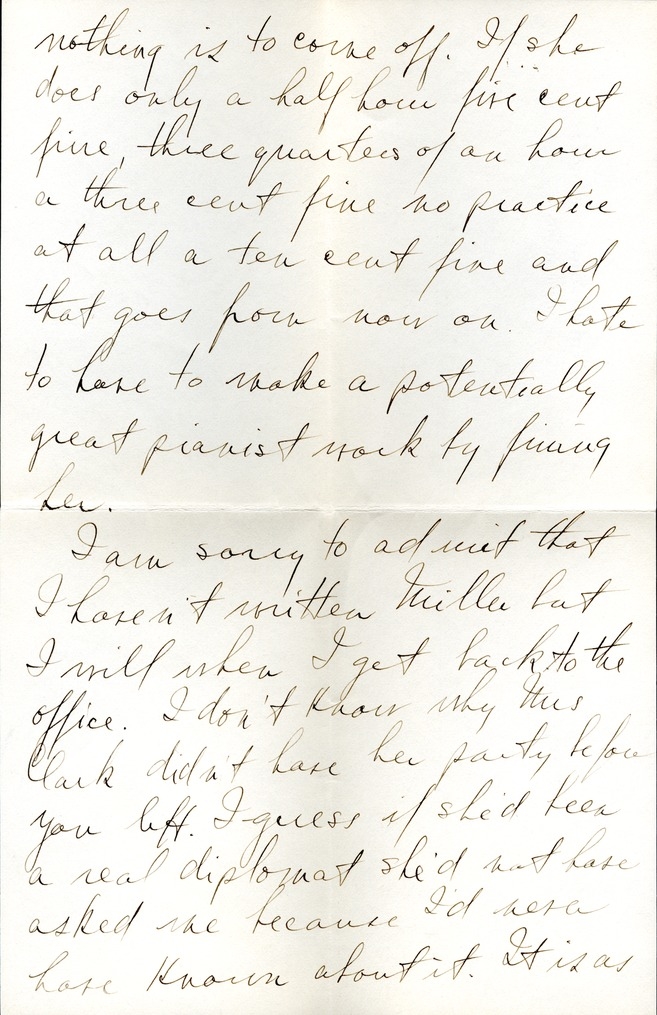 nothing is to come off. If she
does only a half hour five cent
fine, three quarters of an hour
a three cent fine no practice
at all a ten cent fine and
that goes from now on. I hate
to have to make a potentially
great pianist work by fining
her.
I am sorry to admit that
I haven't written Miller but
I will when I get back to the
office. I don't know why Mrs
Clark didn't have her party before
you left. I guess if she'd been
a real diplomat she'd not have
asked me because I'd never
have known about it. It is as